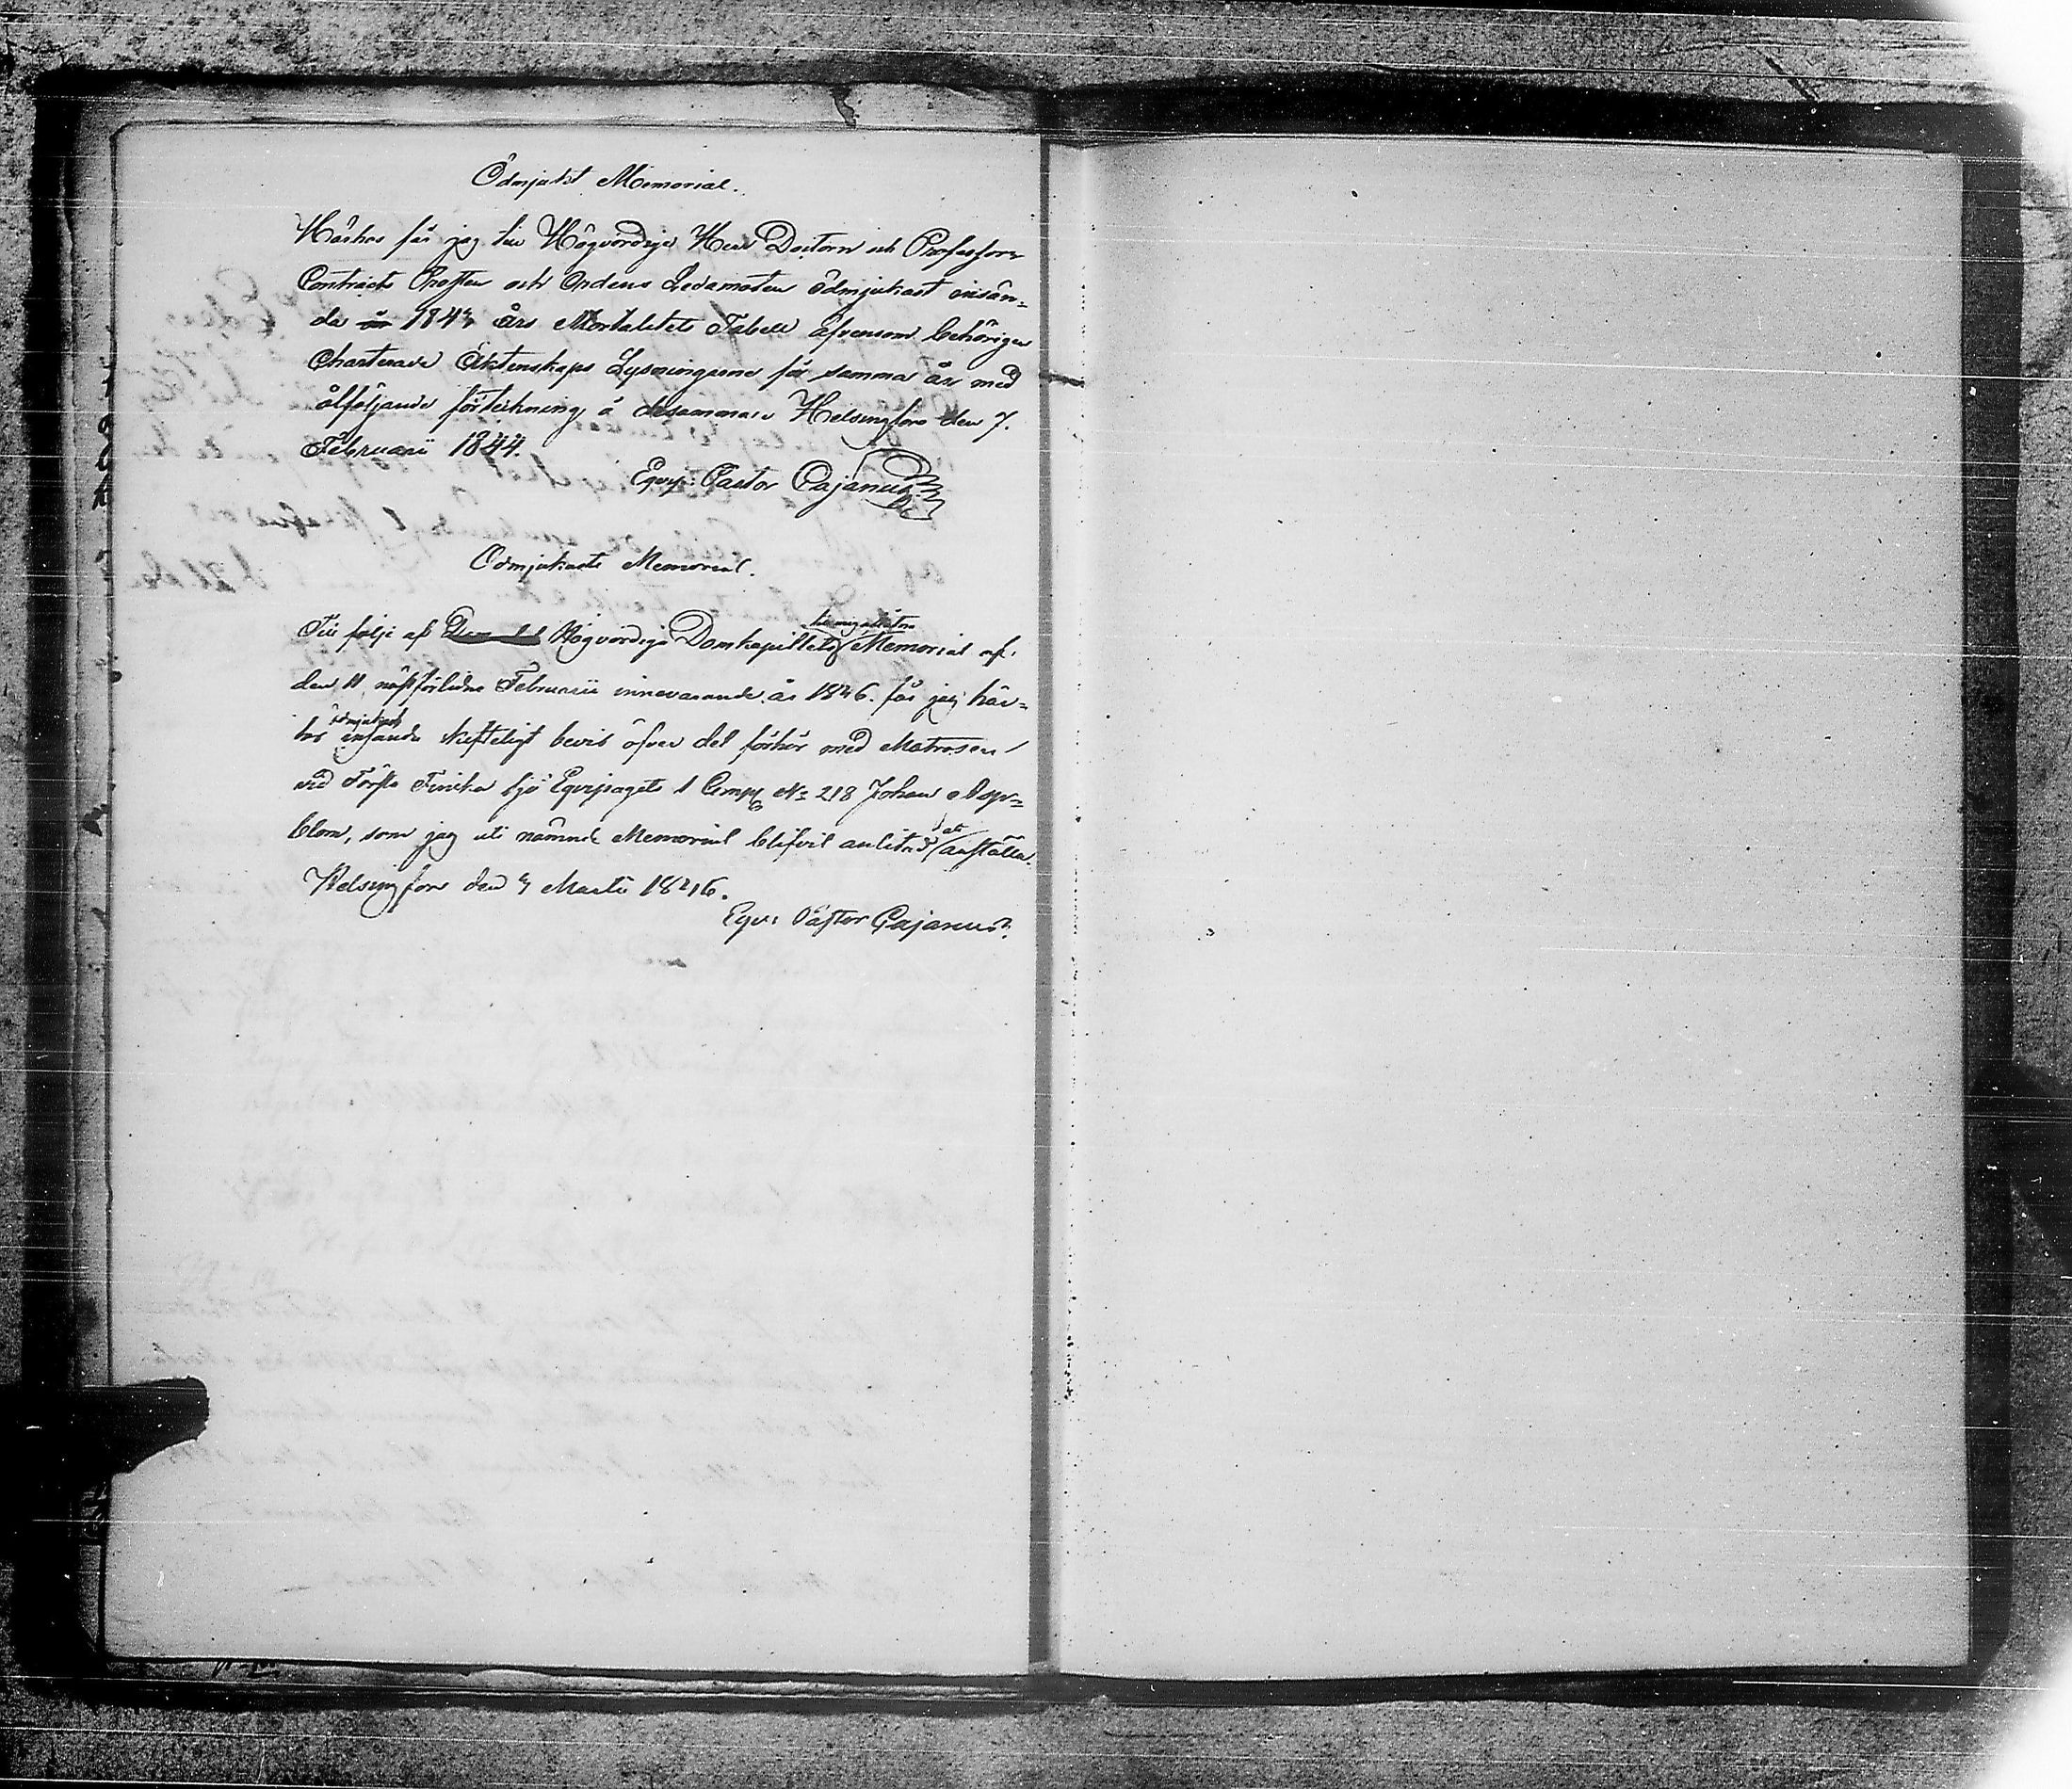 Ödmjukt Memorial.
Härhos får jag till Högvördige Herr Doctorn och Professorn
Contracts Prosten och Ordens Ledamoten ödmjukast insän=
da 1843 Års Mortalitets Tabell äfvensom behörigen
Charterade Äktenskaps Lysningarne för samma år med
åtföljande förtekning å desamma. Helsingfors den 7.
Februarii 1844.
Eqvip: Pastor Cajanus
Ödmjukaste Memorial.
Till följe af Högvördige Domkapitlets Memorial af
den 11 nästförlidne Februarii innevarande år 1846. får jag här=
hos ödmjukast insända skifteligt bevis öfver det förhör med Matrosen
vid Första Finska Sjö Eqvipagets 1 Comp. No 218 Johan Asp=
blom, som jag uti nämnde Memorial blifvit anlitad att anställa.
Helsingfors den Martii 1846.
Eqv: Pastor Cajanus.